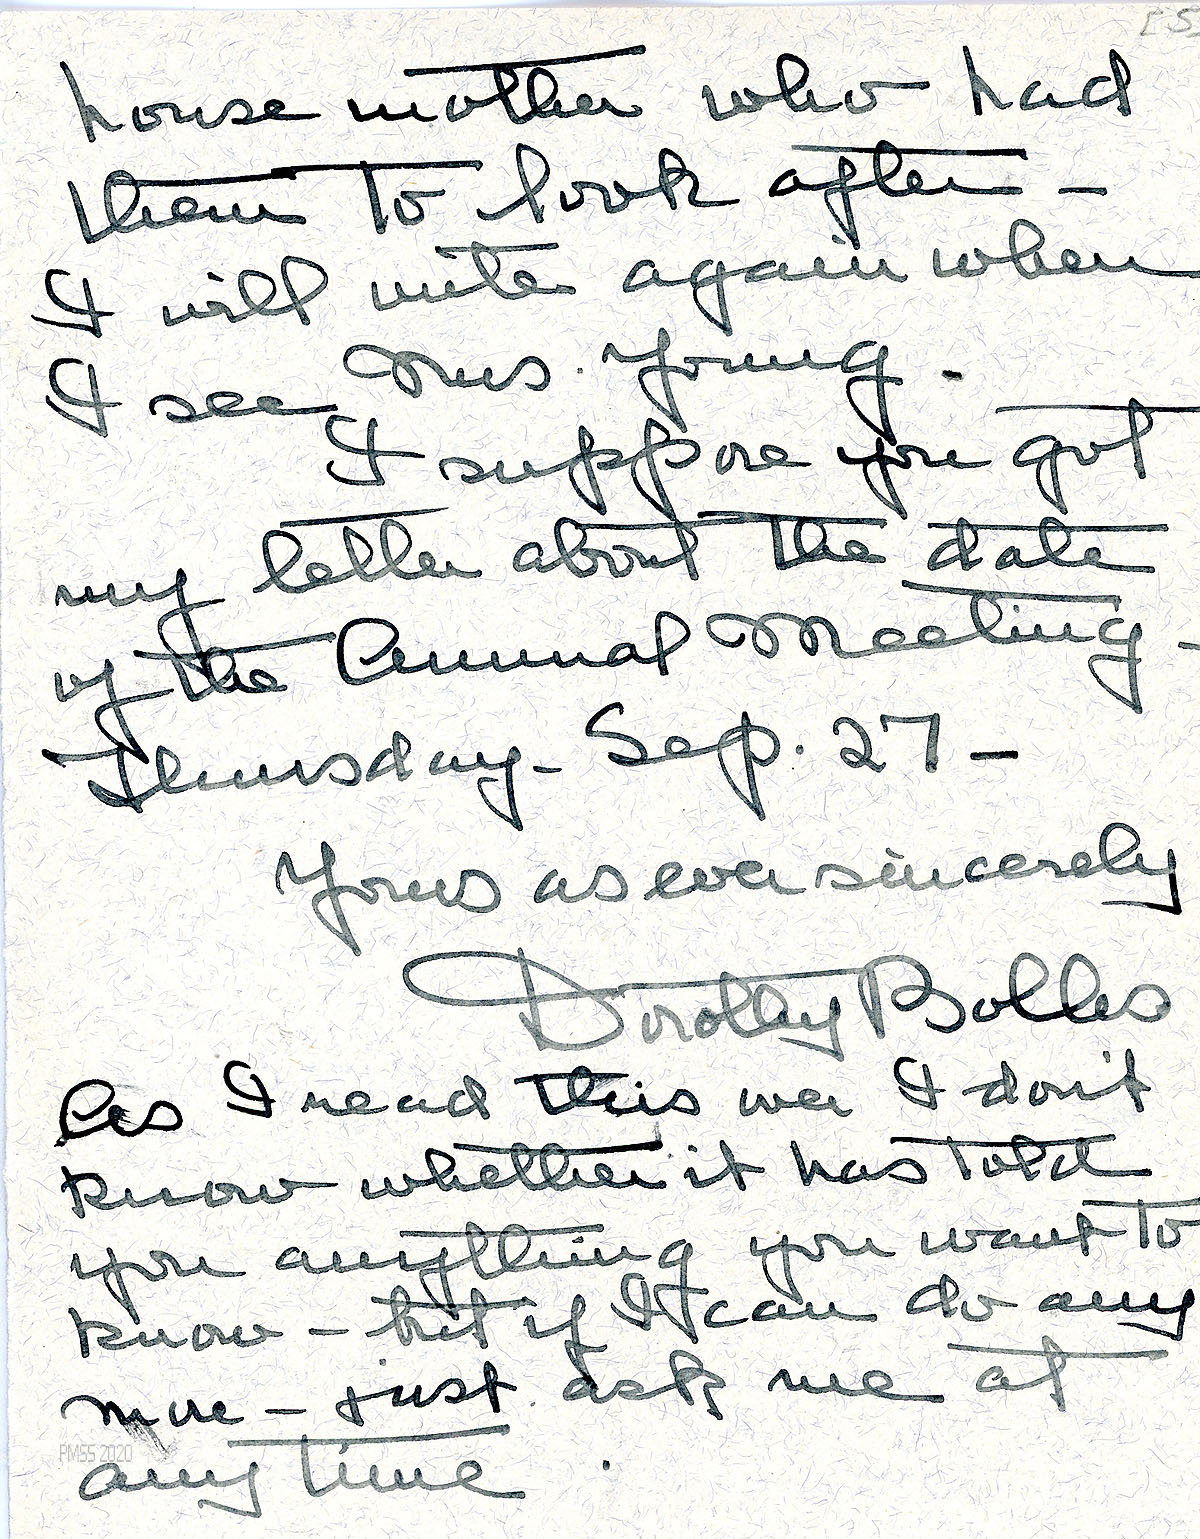 [5]
house mother who had
them to look after –
I will write again when
I see Mrs. Young.
I suppose you got
my letter about the date
of the Annual Meeting –
Thursday – Sep. 27 –
Yours as ever sincerely
Dorothy Bolles
As I read this over I don't
know whether it has told
you anything you want to
know – but if I can do any
more – just ask me at
any time.
PMSS 2020